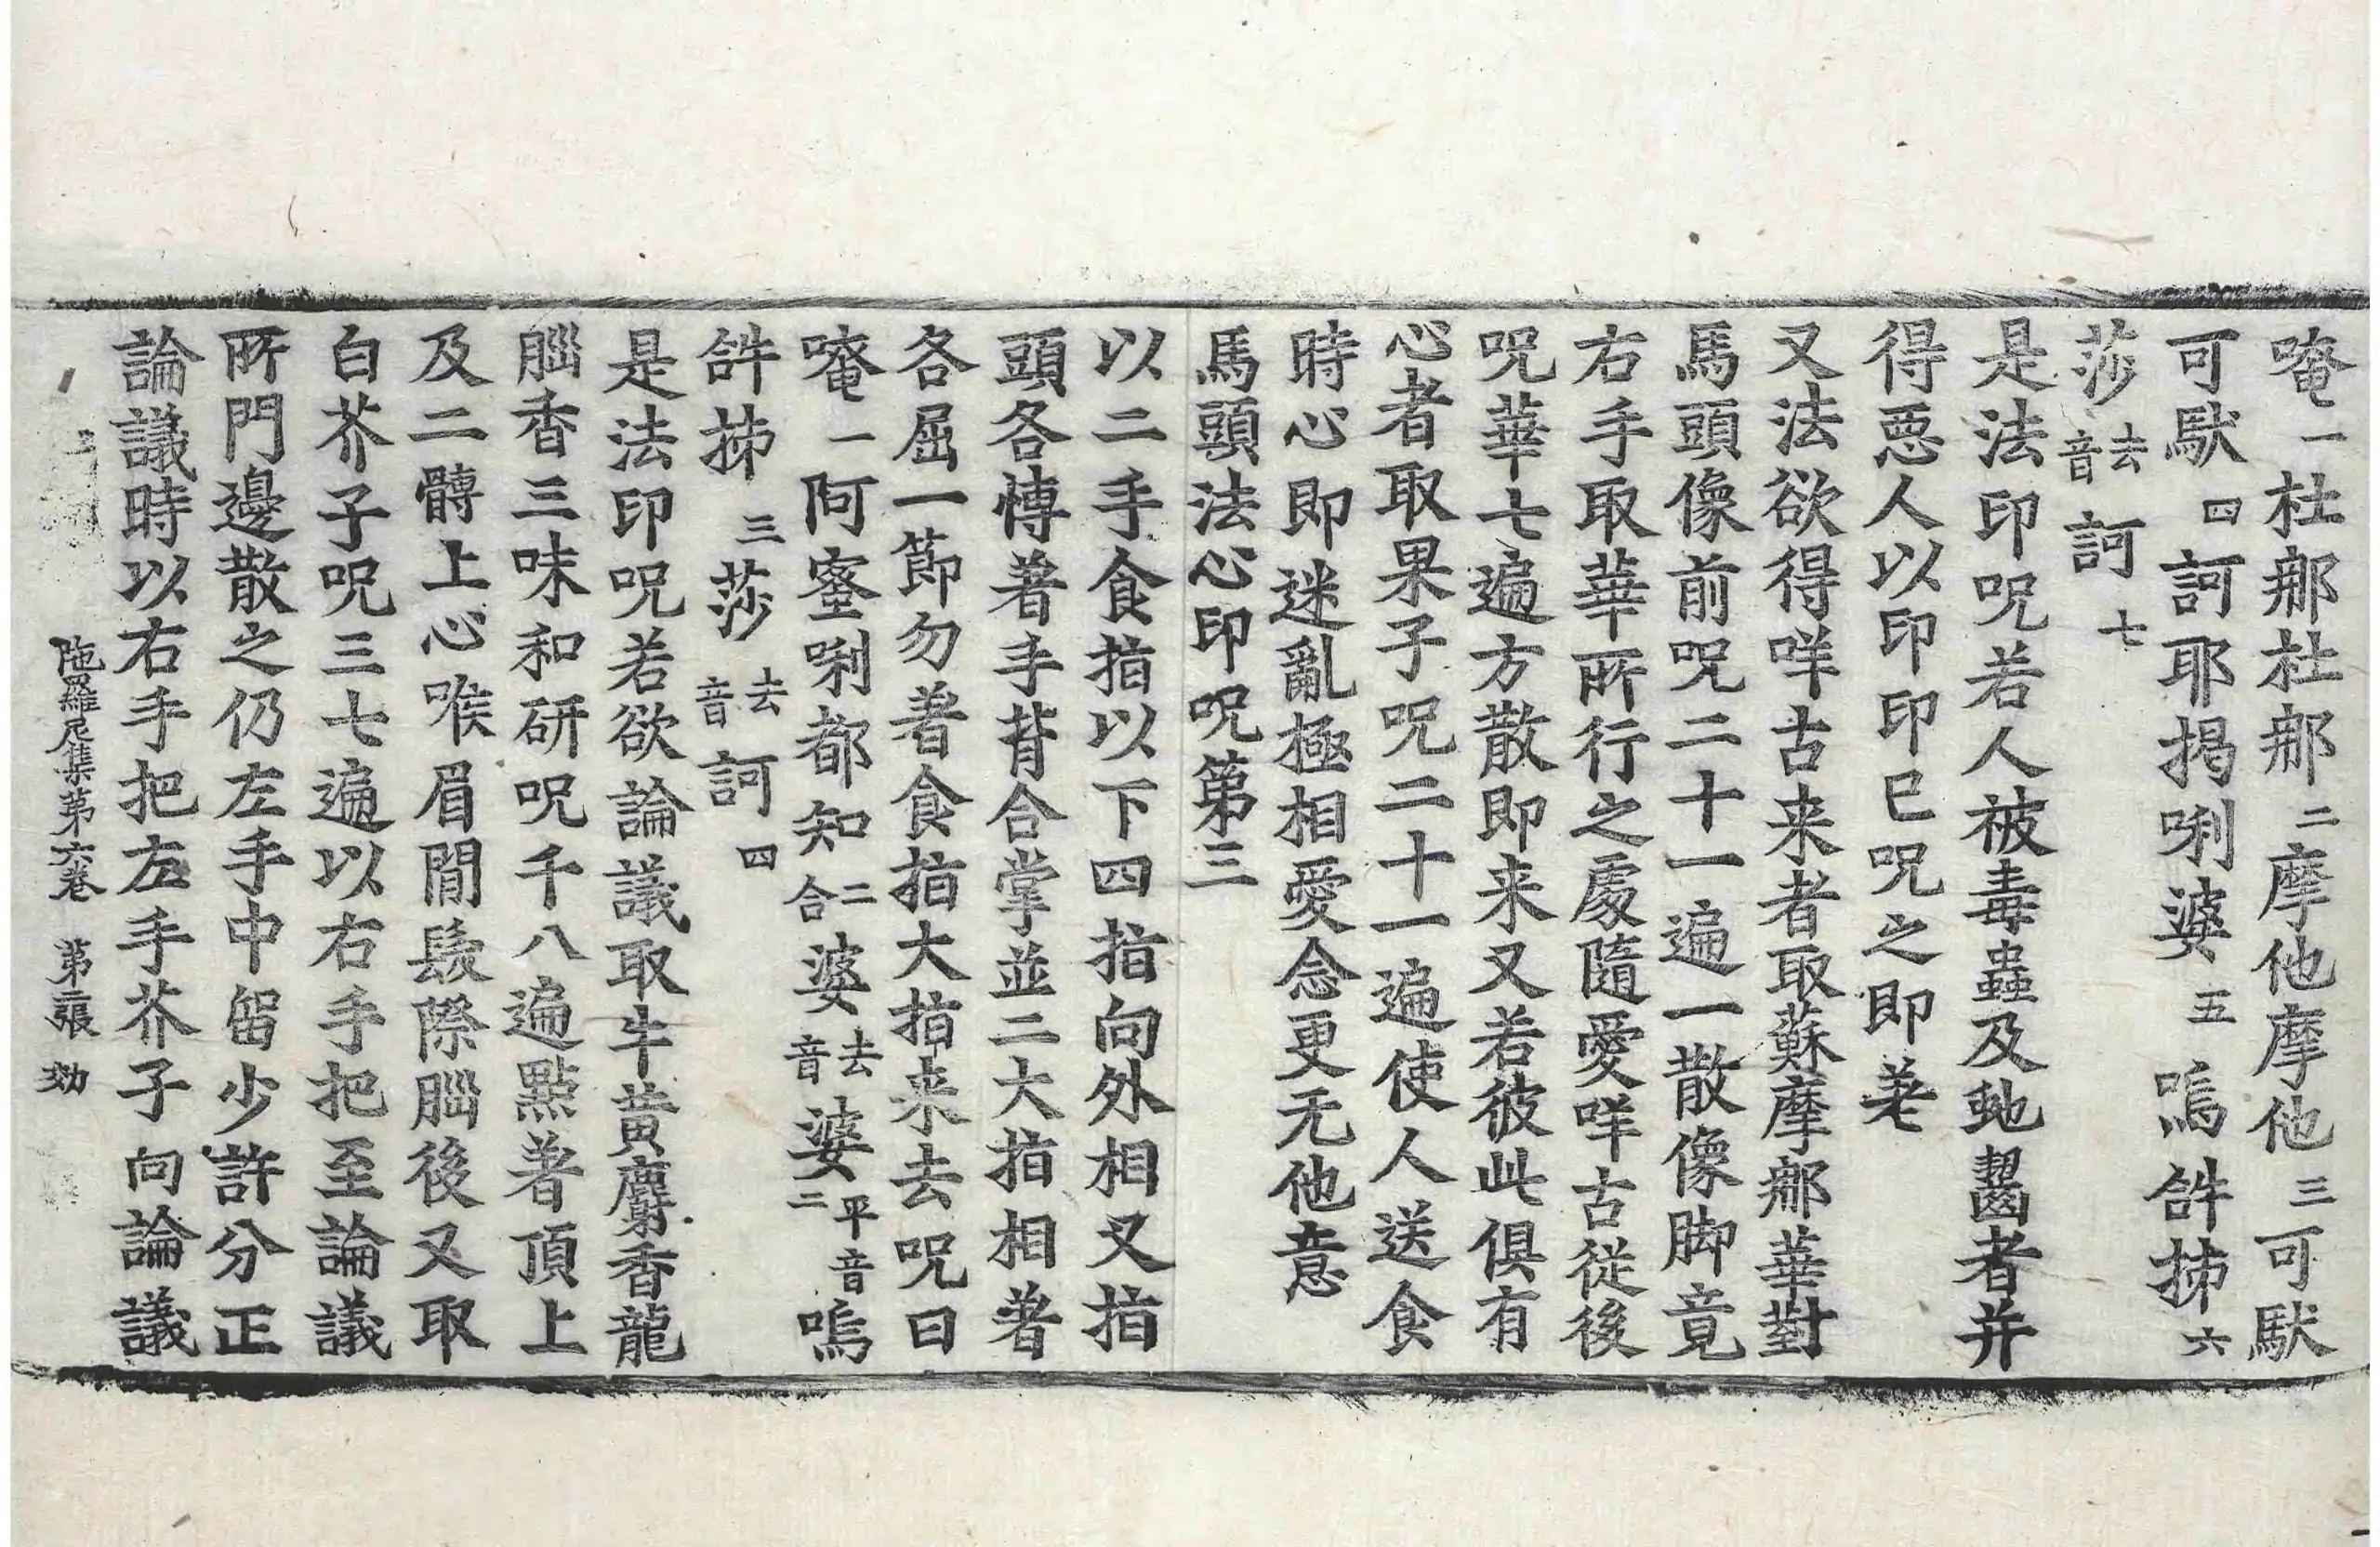 唵一杜那杜那二摩他摩他三可馱
可馱四訶耶揭唎婆五嗚𤙖抪六
莎去音訶七
是法印呪若人被毒蟲及虵齧者并
得惡人以印印已呪之即差
又法欲得咩古来者取蘇摩那華對
馬頭像前呪二十一遍一散像脚竟
右手取華所行之處隨愛咩古從後
呪華七遍方散即来又若彼此俱有
心者取果子呪二十一遍使人送食
時心即迷亂極相愛念更无他意
馬頭法心印呪第三
以二手食指以下四指向外相叉指
頭各博著手背合掌並二大指相著
各屈一節勿著食指大指来去呪曰
唵一阿蜜唎都知二合婆去音婆平音二嗚
𤙖抪三莎去音訶四
是法印呪若欲論議取牛黃麝香龍
腦香三味和研呪千八遍點著頂上
及二髆上心喉眉間髮際腦後又取
白芥子呪三七遍以右手把至論議
所門邊散之仍左手中留少許分正
論議時以右手把左手芥子向論議
陁羅尼集第六卷 第二張 効